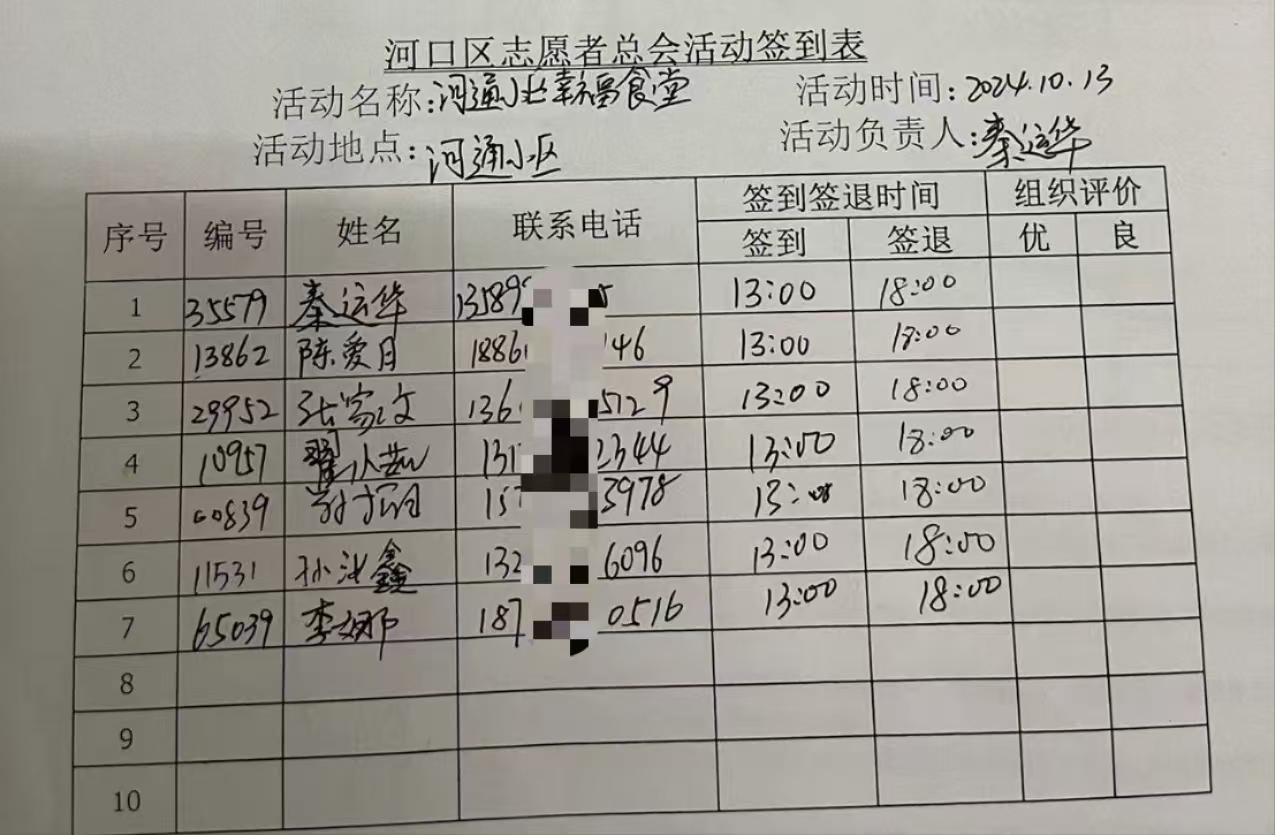 河口区志愿者总会活动签到表
活动名称:河通小区幸福食堂 活动时间:2024.10.13
活动地点:河通小区 活动负责人:秦运华
序号 编号 姓名 联系电话 签到签退时间 组织评价
签到 签退 优 良
1 35579 秦运华 13589 5 13:00 18:00
2 13862 陈爱月 1886 146 13:00 18:00
3 29952 张富文 136 5129 13:00 18:00
4 10957 翟 131 2344 13:00 18:00
5 00839 15 3978 13:00 18:00
6 11531 孙 鑫 132 6096 13:00 18:00
7 65039 李娜 187 0516 13:00 18:00
8
9
10